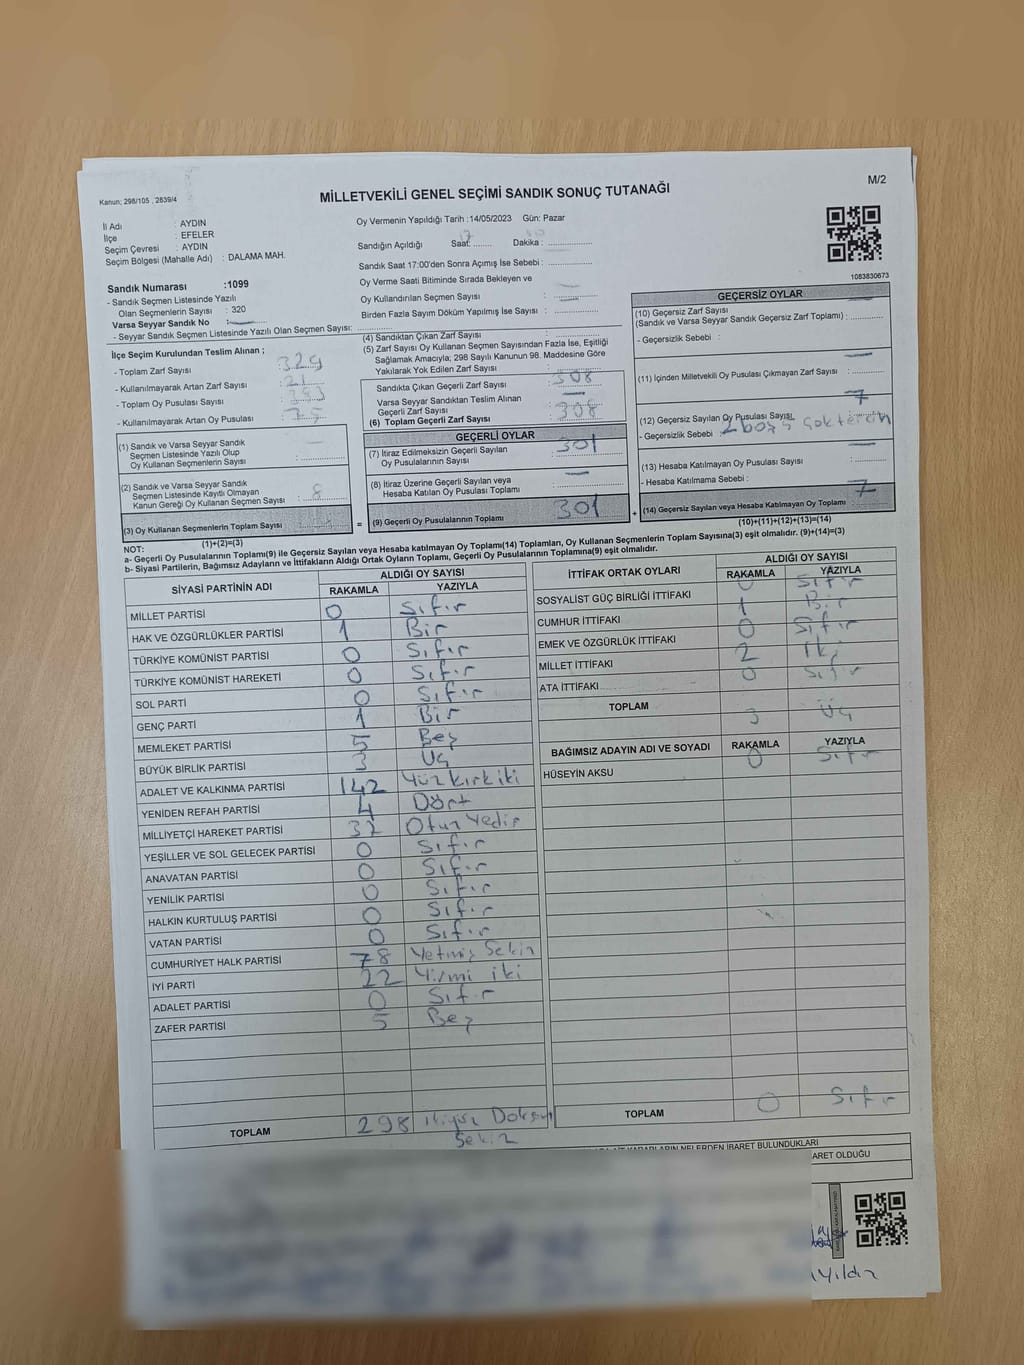 M/2
MİLLETVEKİLİ GENEL SEÇİMİ SANDIK SONUÇ TUTANAĞI
Kanun; 298/105 , 2839/4
İl Adı : AYDIN
İlçe : EFELER
Seçim Çevresi : AYDIN
Seçim Bölgesi (Mahalle Adı) : DALAMA MAH.
Sandık Numarası :1099
- Sandık Seçmen Listesinde Yazılı
Olan Seçmenlerin Sayısı : 320
Varsa Seyyar Sandık No :
- Seyyar Sandık Seçmen Listesinde Yazılı Olan Seçmen Sayısı:
Oy Vermenin Yapıldığı Tarih :14/05/2023 Gün: Pazar
Sandığın Açıldığı Saat: 17 Dakika :
Sandık Saat 17:00'den Sonra Açımış İse Sebebi :
Oy Verme Saati Bitiminde Sırada Bekleyen ve
Oy Kullandırılan Seçmen Sayısı :
Birden Fazla Sayım Döküm Yapılmış İse Sayısı :
1083830673
İlçe Seçim Kurulundan Teslim Alınan ;
- Toplam Zarf Sayısı : 329
- Kullanılmayarak Artan Zarf Sayısı : 21
- Toplam Oy Pusulası Sayısı :
- Kullanılmayarak Artan Oy Pusulası :
(1) Sandık ve Varsa Seyyar Sandık
Seçmen Listesinde Yazılı Olup
Oy Kullanan Seçmenlerin Sayısı :
(2) Sandık ve Varsa Seyyar Sandık
Seçmen Listesinde Kayıtlı Olmayan
Kanun Gereği Oy Kullanan Seçmen Sayısı : 8
(3) Oy Kullanan Seçmenlerin Toplam Sayısı
(1)+(2)=(3)
(4) Sandıktan Çıkan Zarf Sayısı :
(5) Zarf Sayısı Oy Kullanan Seçmen Sayısından Fazla İse, Eşitliği
Sağlamak Amacıyla; 298 Sayılı Kanunun 98. Maddesine Göre
Yakılarak Yok Edilen Zarf Sayısı :
Sandıkta Çıkan Geçerli Zarf Sayısı : 308
Varsa Seyyar Sandıktan Teslim Alınan
Geçerli Zarf Sayısı :
(6) Toplam Geçerli Zarf Sayısı : 308
GEÇERLİ OYLAR
(7) İtiraz Edilmeksizin Geçerli Sayılan 301
Oy Pusulalarının Sayısı :
(8) İtiraz Üzerine Geçerli Sayılan veya
Hesaba Katılan Oy Pusulası Toplamı :
= (9) Geçerli Oy Pusulalarının Toplamı 301
GEÇERSİZ OYLAR
(10) Geçersiz Zarf Sayısı
(Sandık ve Varsa Seyyar Sandık Geçersiz Zarf Toplamı) :
- Geçersizlik Sebebi :
(11) İçinden Milletvekili Oy Pusulası Çıkmayan Zarf Sayısı :
(12) Geçersiz Sayılan Oy Pusulası Sayısı : 7
- Geçersizlik Sebebi : 2 boş 5
(13) Hesaba Katılmayan Oy Pusulası Sayısı :
- Hesaba Katılmama Sebebi :
+ (14) Geçersiz Sayılan veya Hesaba Katılmayan Oy Toplamı : 7
(10)+(11)+(12)+(13)=(14)
NOT:
a- Geçerli Oy Pusulalarının Toplamı(9) ile Geçersiz Sayılan veya Hesaba katılmayan Oy Toplamı(14) Toplamları, Oy Kullanan Seçmenlerin Toplam Sayısına(3) eşit olmalıdır. (9)+(14)=(3)
b- Siyasi Partilerin, Bağımsız Adayların ve İttifakların Aldığı Ortak Oyların Toplamı, Geçerli Oy Pusulalarının Toplamına(9) eşit olmalıdır.
SİYASİ PARTİNİN ADI ALDIĞI OY SAYISI
RAKAMLA YAZIYLA
MİLLET PARTİSİ 0 Sıfır
HAK VE ÖZGÜRLÜKLER PARTİSİ 1 Bir
TÜRKİYE KOMÜNİST PARTİSİ 0 Sıfır
TÜRKİYE KOMÜNİST HAREKETİ 0 Sıfır
SOL PARTİ 0 Sıfır
GENÇ PARTİ 1 Bir
MEMLEKET PARTİSİ 5 Beş
BÜYÜK BİRLİK PARTİSİ 3 Üç
ADALET VE KALKINMA PARTİSİ 142 Yüz kırk iki
YENİDEN REFAH PARTİSİ 4 Dört
MİLLİYETÇİ HAREKET PARTİSİ 37 Otuz
YEŞİLLER VE SOL GELECEK PARTİSİ 0 Sıfır
ANAVATAN PARTİSİ 0 Sıfır
YENİLİK PARTİSİ 0 Sıfır
HALKIN KURTULUŞ PARTİSİ 0 Sıfır
VATAN PARTİSİ 0 Sıfır
CUMHURİYET HALK PARTİSİ 78 Yetmiş Sekiz
İYİ PARTİ 22 Yirmi iki
ADALET PARTİSİ 0 Sıfır
ZAFER PARTİSİ 5 Beş
TOPLAM 298 ikiyüz Doksan
Sekiz
İTTİFAK ORTAK OYLARI ALDIĞI OY SAYISI
RAKAMLA YAZIYLA
SOSYALİST GÜÇ BİRLİĞİ İTTİFAKI 0 Sıfır
CUMHUR İTTİFAKI 1 Bir
EMEK VE ÖZGÜRLÜK İTTİFAKI 0 Sıfır
MİLLET İTTİFAKI 2 İki
ATA İTTİFAKI 0 Sıfır
TOPLAM 3 Üç
BAĞIMSIZ ADAYIN ADI VE SOYADI RAKAMLA YAZIYLA
HÜSEYİN AKSU 0 Sıfır
TOPLAM 0 Sıfır
KARARLARIN NELERDEN İBARET BULUNDUKLARI
ARET OLDUĞU